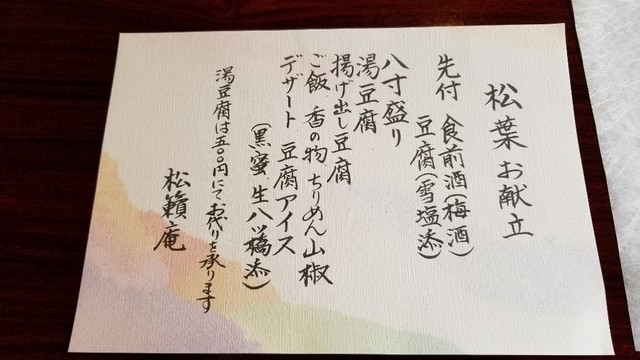 松葉お献立
先付 食前酒(梅酒)
豆腐(雪塩添)
八寸盛り
湯豆腐
揚げ出し豆腐
ご飯 香の物 ちりめん山椒
デザート 豆腐アイス
(黒蜜、生八橋添)
湯豆腐は五〇〇円にてお代りを承ります
松籟庵